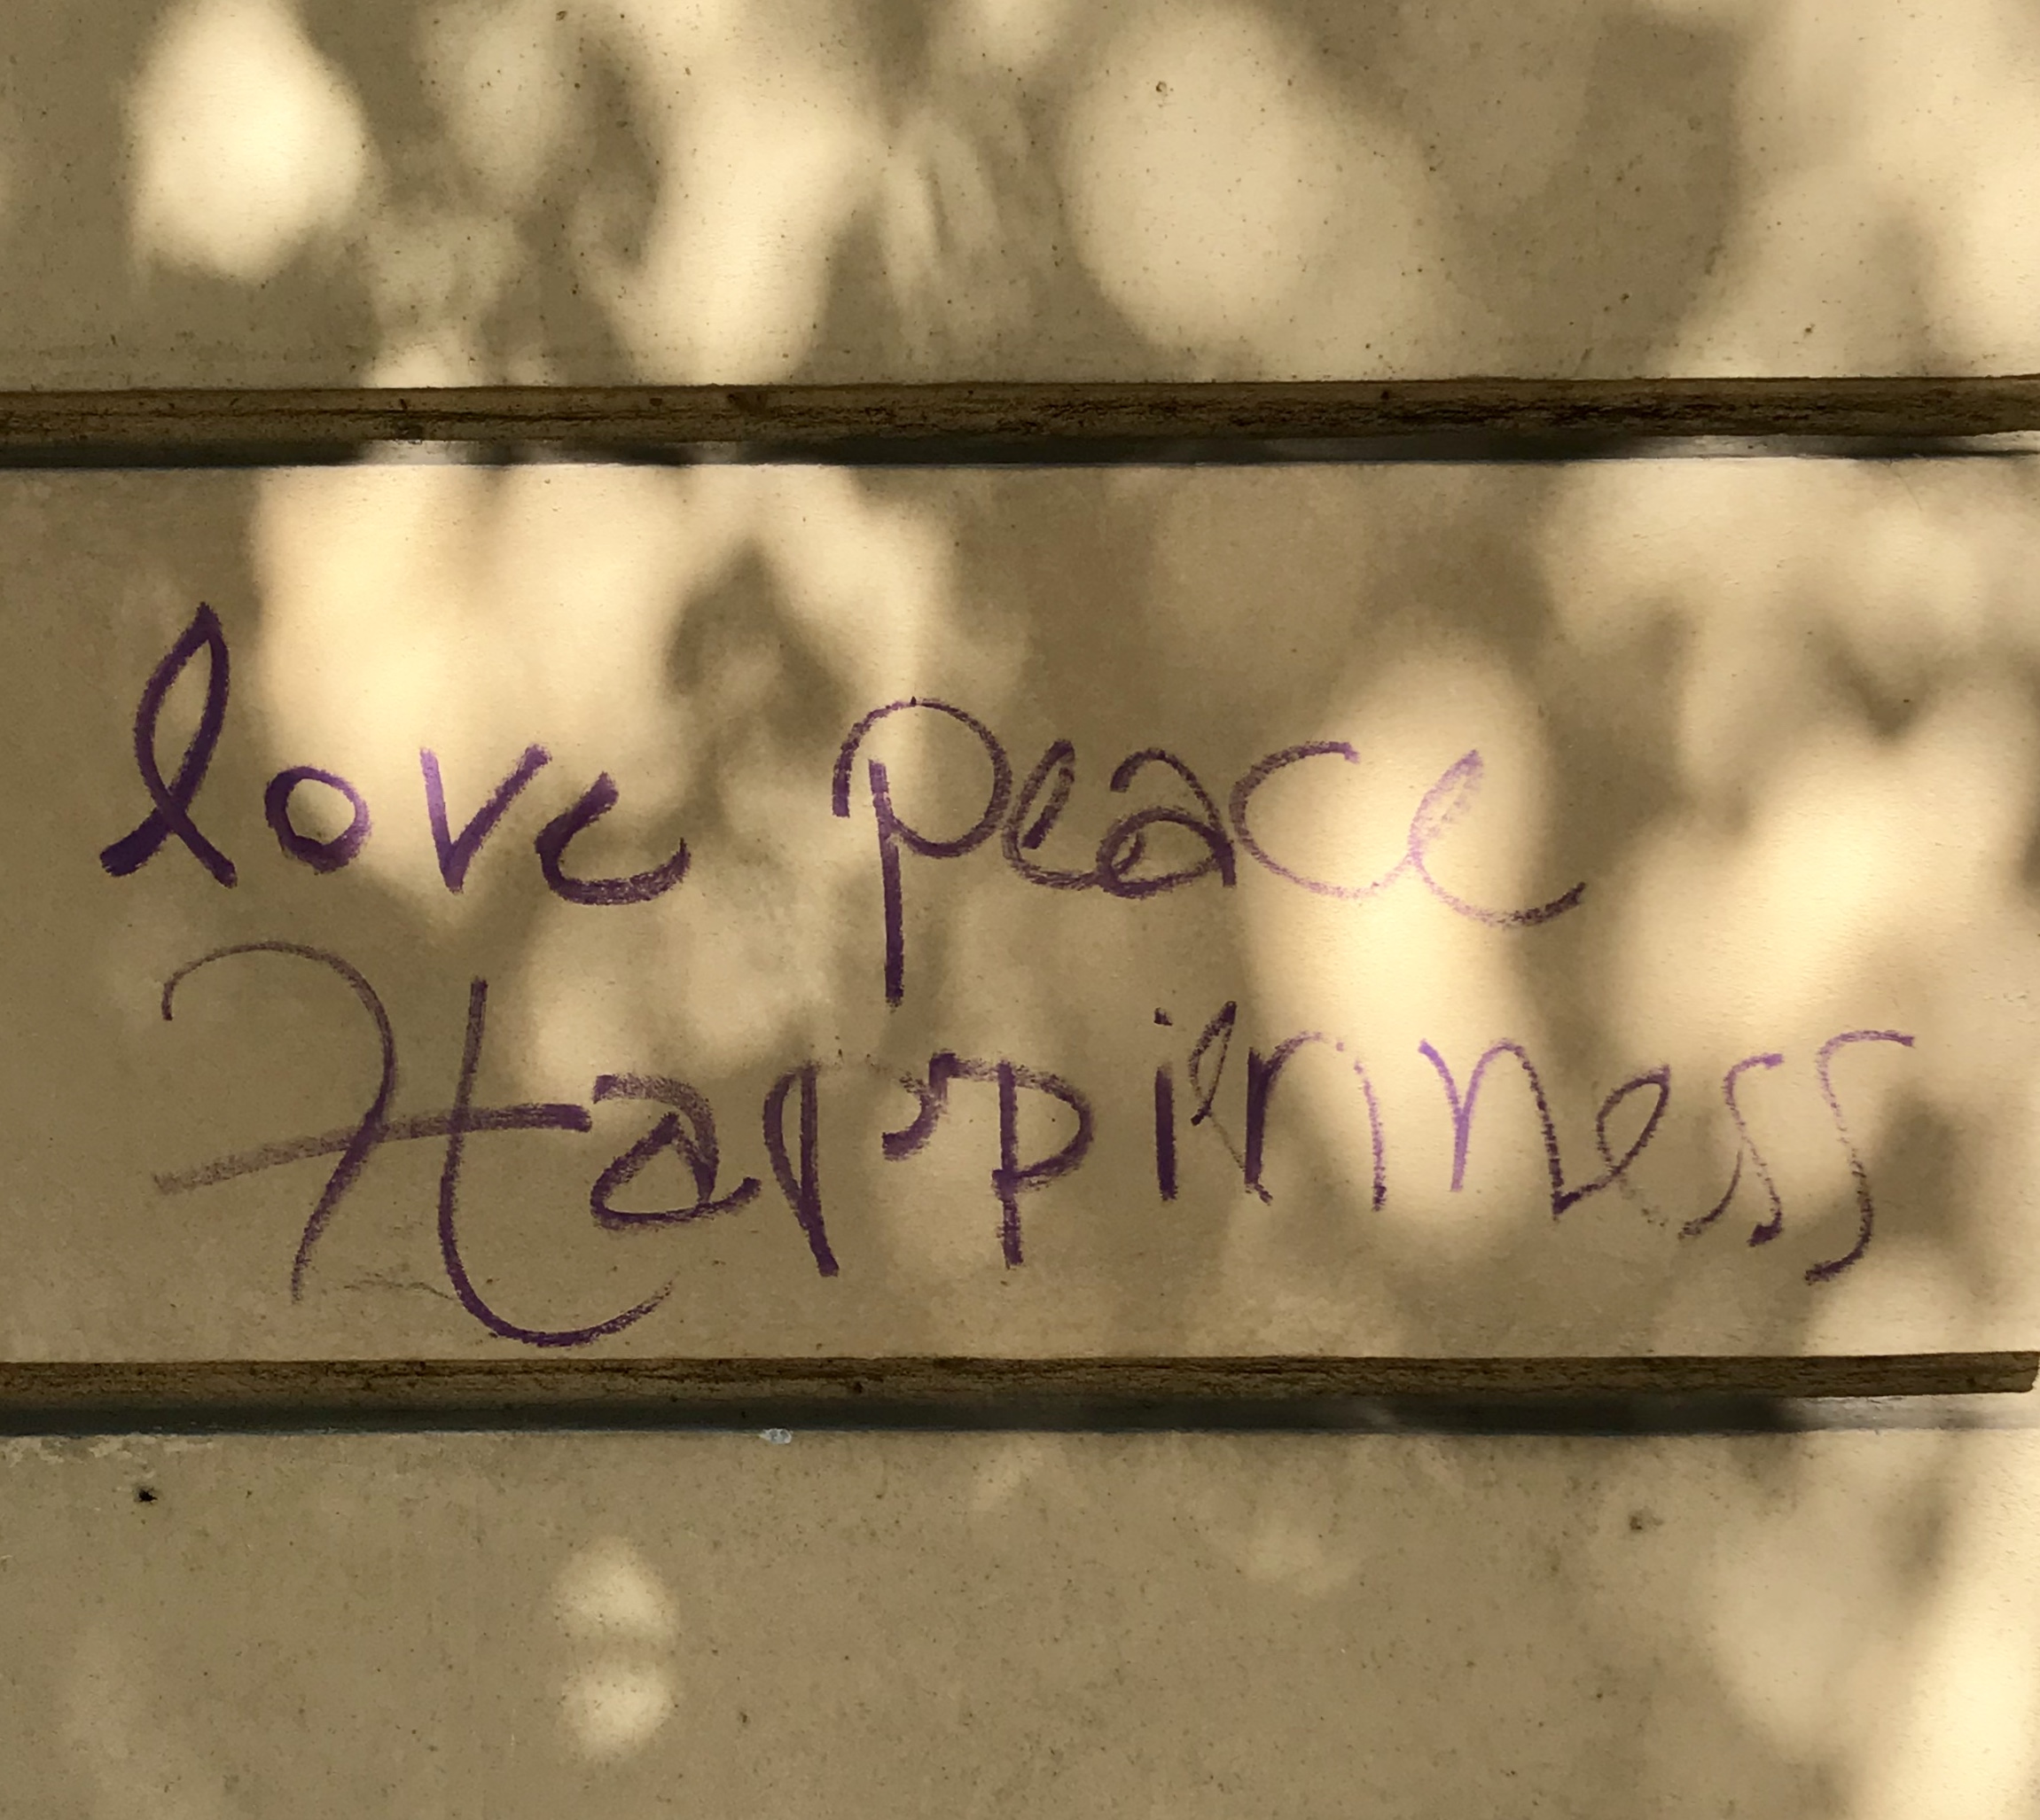 love peace
Happinness